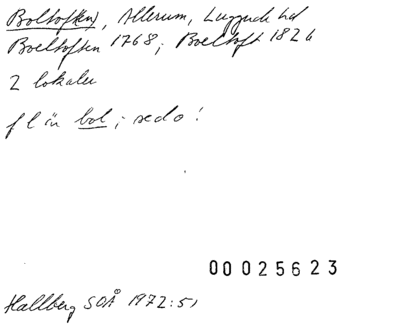 Boltoft(en), Allerum, Luggude hd
Boeltoften 1768; Boeltoft 1826
2 lokaler
f l är bol; se do!
00025623
Hallberg SOÅ 1972:51